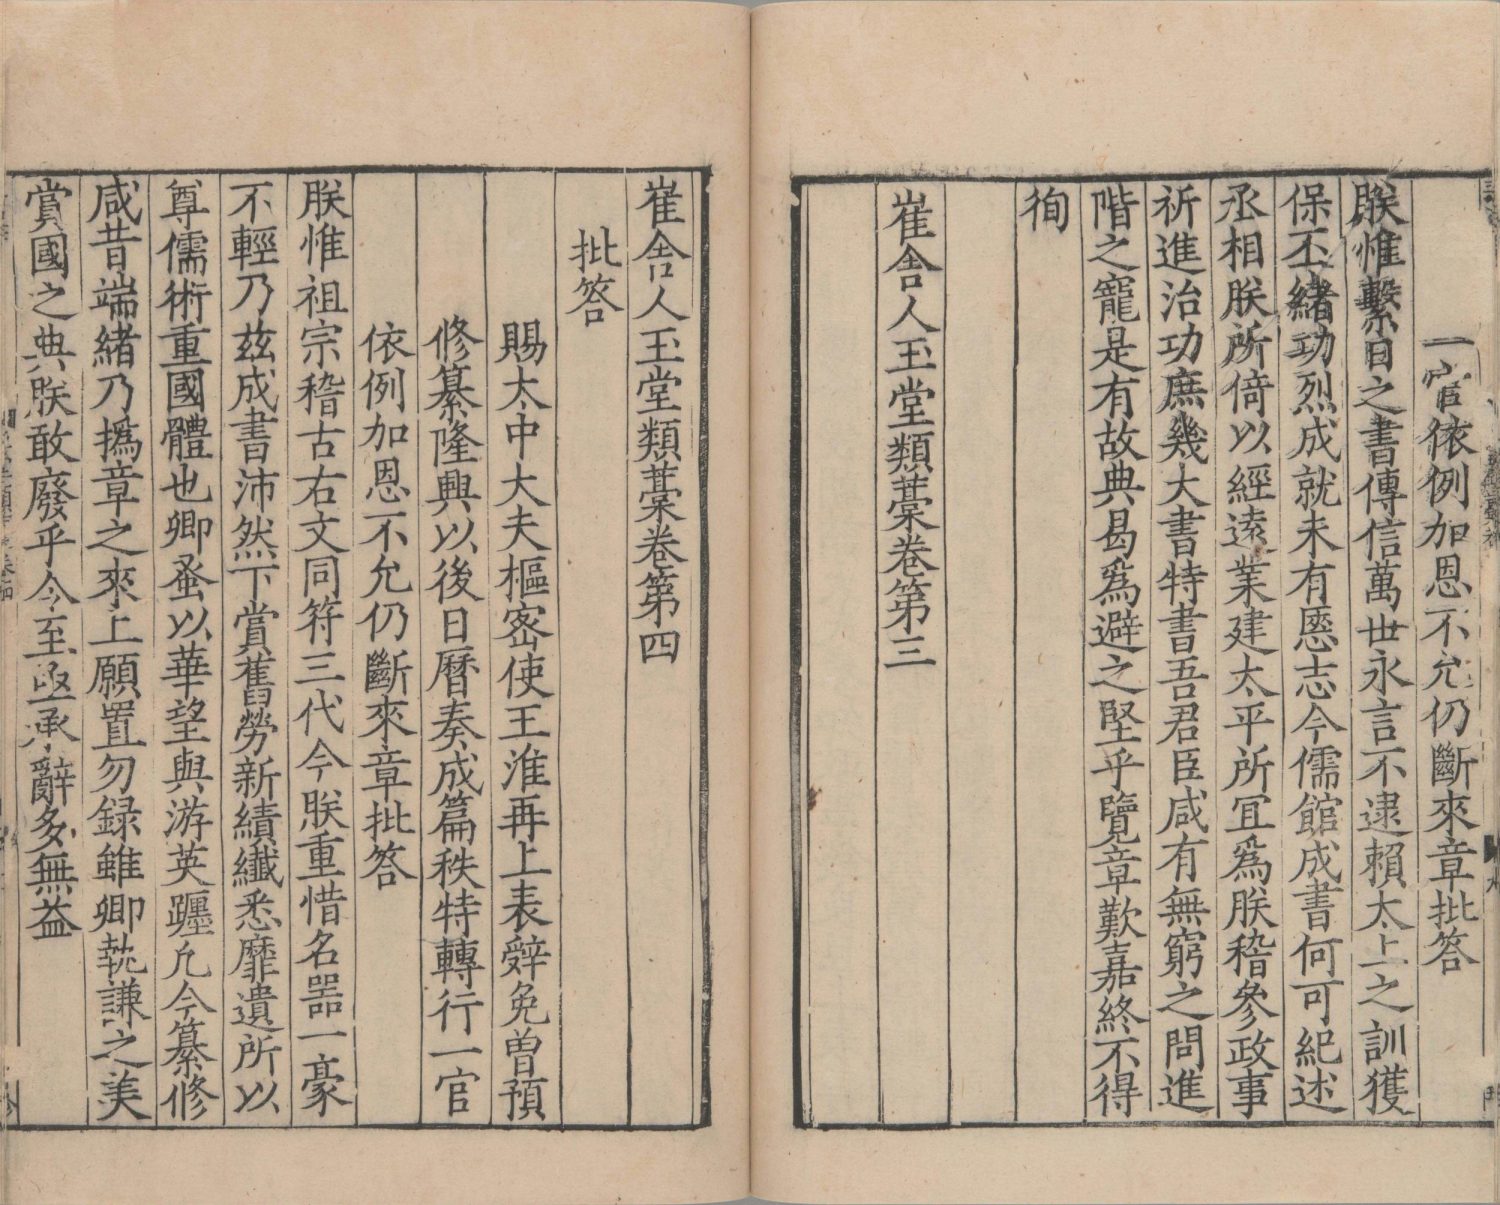 一官依例加恩不允仍斷來章批答
朕惟繫日之書傳信萬世永言不逮賴太上之訓獲
保丕緒功烈成就未有慝志今儒館成書何可紀述
丞相朕所倚以經遠業建太平所冝爲朕稽參政事
祈進治功庶幾大書特書吾君臣咸有無窮之問進
階之寵是有故典曷爲避之堅乎覽章歎嘉終不得
徇
崔舎人玉堂類藁卷第三
崔舎人玉堂類藁卷第四
批答
賜太中大夫樞密使王淮再上表辤免曽預
修纂隆興以後日曆奏成篇秩特轉行一官
依例加恩不允仍斷來章批答
朕惟祖宗稽古右文同符三代今朕重惜名器一豪
不輕乃兹成書沛然下賞舊勞新績纖悉靡遺所以
尊儒術重國體也卿蚤以華望與游英躔凢今纂修
咸昔端緒乃撝章之來上願置勿録雖卿執謙之美
賞國之典朕敢廢乎今至亟承辭多無益